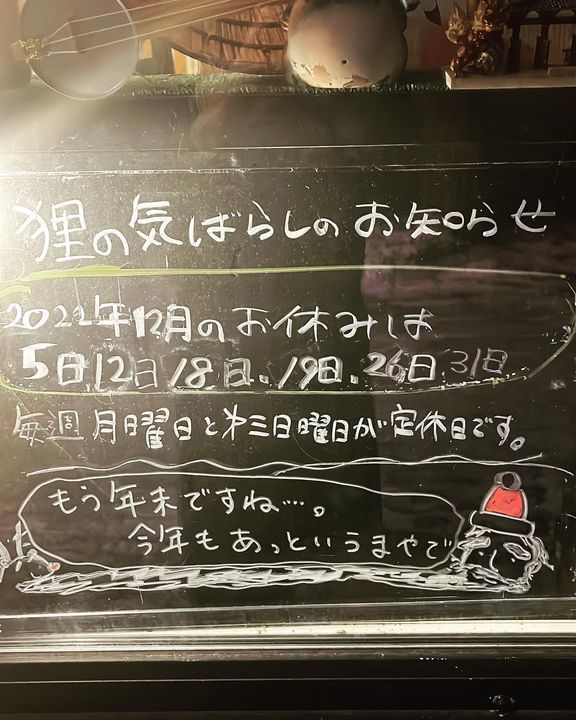 狸の気ばらしのお知らせ
2022年12月のお休みは
5日12日18日.19日.26日31日
毎週月曜日と㐧三日曜日が定休日です。
もう年末ですね…。
今年もあっというまやで